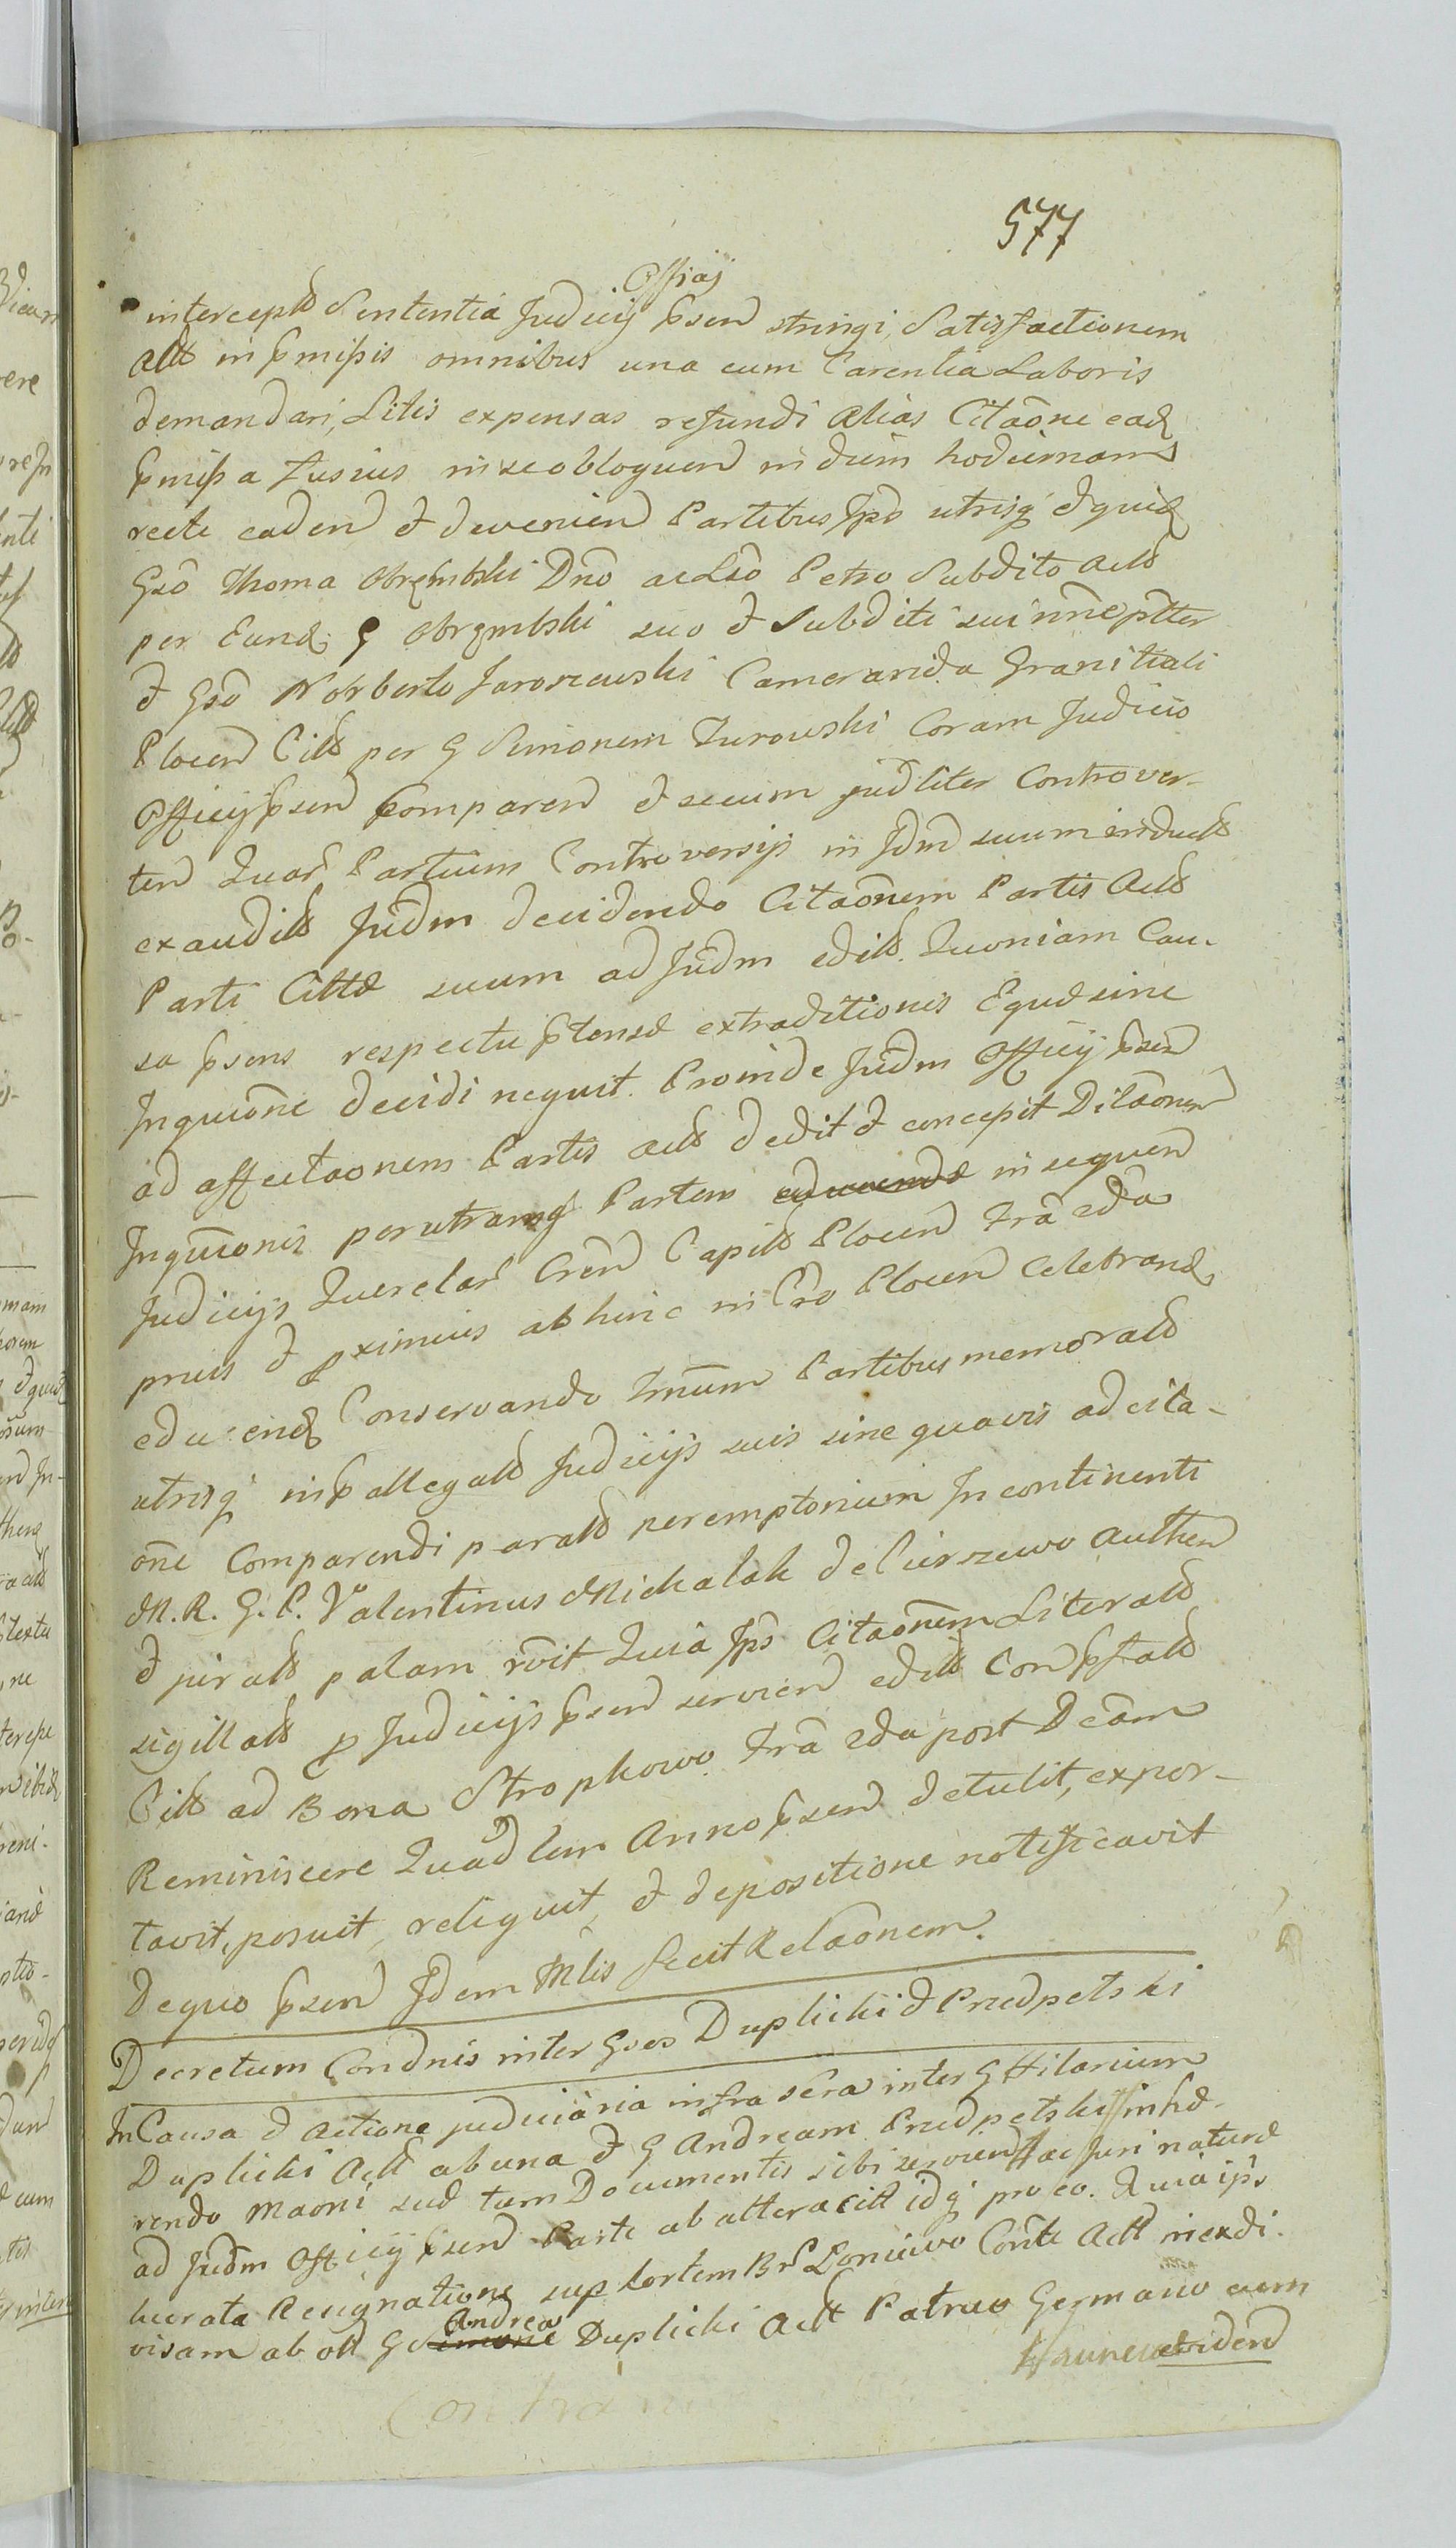 577
Officij
intercepto Sententia Judicij pnsen stringi, Satisfactionem
Actt in pmissis omnibus una cum Carentia Laboris
demandari, Litis expensas refundi alias Citaõne eadq
pmissa fusius in se obloquen in diem hodiernam
recte caden & devenien Partibus Ipõ utrisq & quidq
Gsõ Thoma Obrębski Dnõ ac Lsõ Petro Subdito Actt
per Eundq G Obrębski suo & Subditi sui nñe pñtter
& Gsõ Norberto Jaroszewski Camerarida Granitiali
Plocen Citt per G Simonem Zurowski Coram Judicio
Officij pnsen Comparen & secum judliter Controver-
ten Quar Partium Controversijs in Jdm suum induct
exaudit Judm decidendo Citaõnem Partis Actt
Parti Cittæ suum ad Judm edit. Quoniam Cau-
sa psens respectu ptensæ extraditionis Equæ sine
Inquiõne decidi nequit. Proinde Judm Officij pnsen
ad affectaõnem Partis Actt dedit & concepit Dilaõnem
Inquiõnis per utramq Partem in sequen
Judicijs Querelar Cren Capitt Plocen fra eda
prius & pximius abhinc in Cro Plocen celebrandq
educendq Conservando Tmnum Partibus memoratt
utrisq in pallegatt Judicijs suis sine quavis adcita-
õne Comparendi paratt peremptorium In continenti
M. R. G. P. Valentinus Michalak de Cierszewo authen
& juratt palam rõit Quia Ipõ Citaõnem Literatt
sigillatt p Judicijs pnsen servien edit Conpstatt
Citt ad Bona Stropkowo fra 2da post Dcam
Reminiscere Quadlem Anno pnsen detulit, expor-
tavit, posuit, reliquit, & depositione notificavit
De quo pnsen Idem Mlis fecit Relaõnem.
Decretum Condnis inter Gsos Duplicki & Przedpełski
In Causa & Actione judiciaria infrascra inter G Hilarium
Duplicki Actt ab una & G Andream Przedpełski inhæ-
rendo Maoni suæ tum Documentis sibi servien ac Juri naturæ
ad Judm Officij pnsen Parte ab altera Citt idq pro eo. Quia ips
lucrata Resignatione sup Sortem Br Loniewo Conte Actt in exdi-
visam ab olt G Andrea Duplicki Actt Patruo Germano cum
eviden